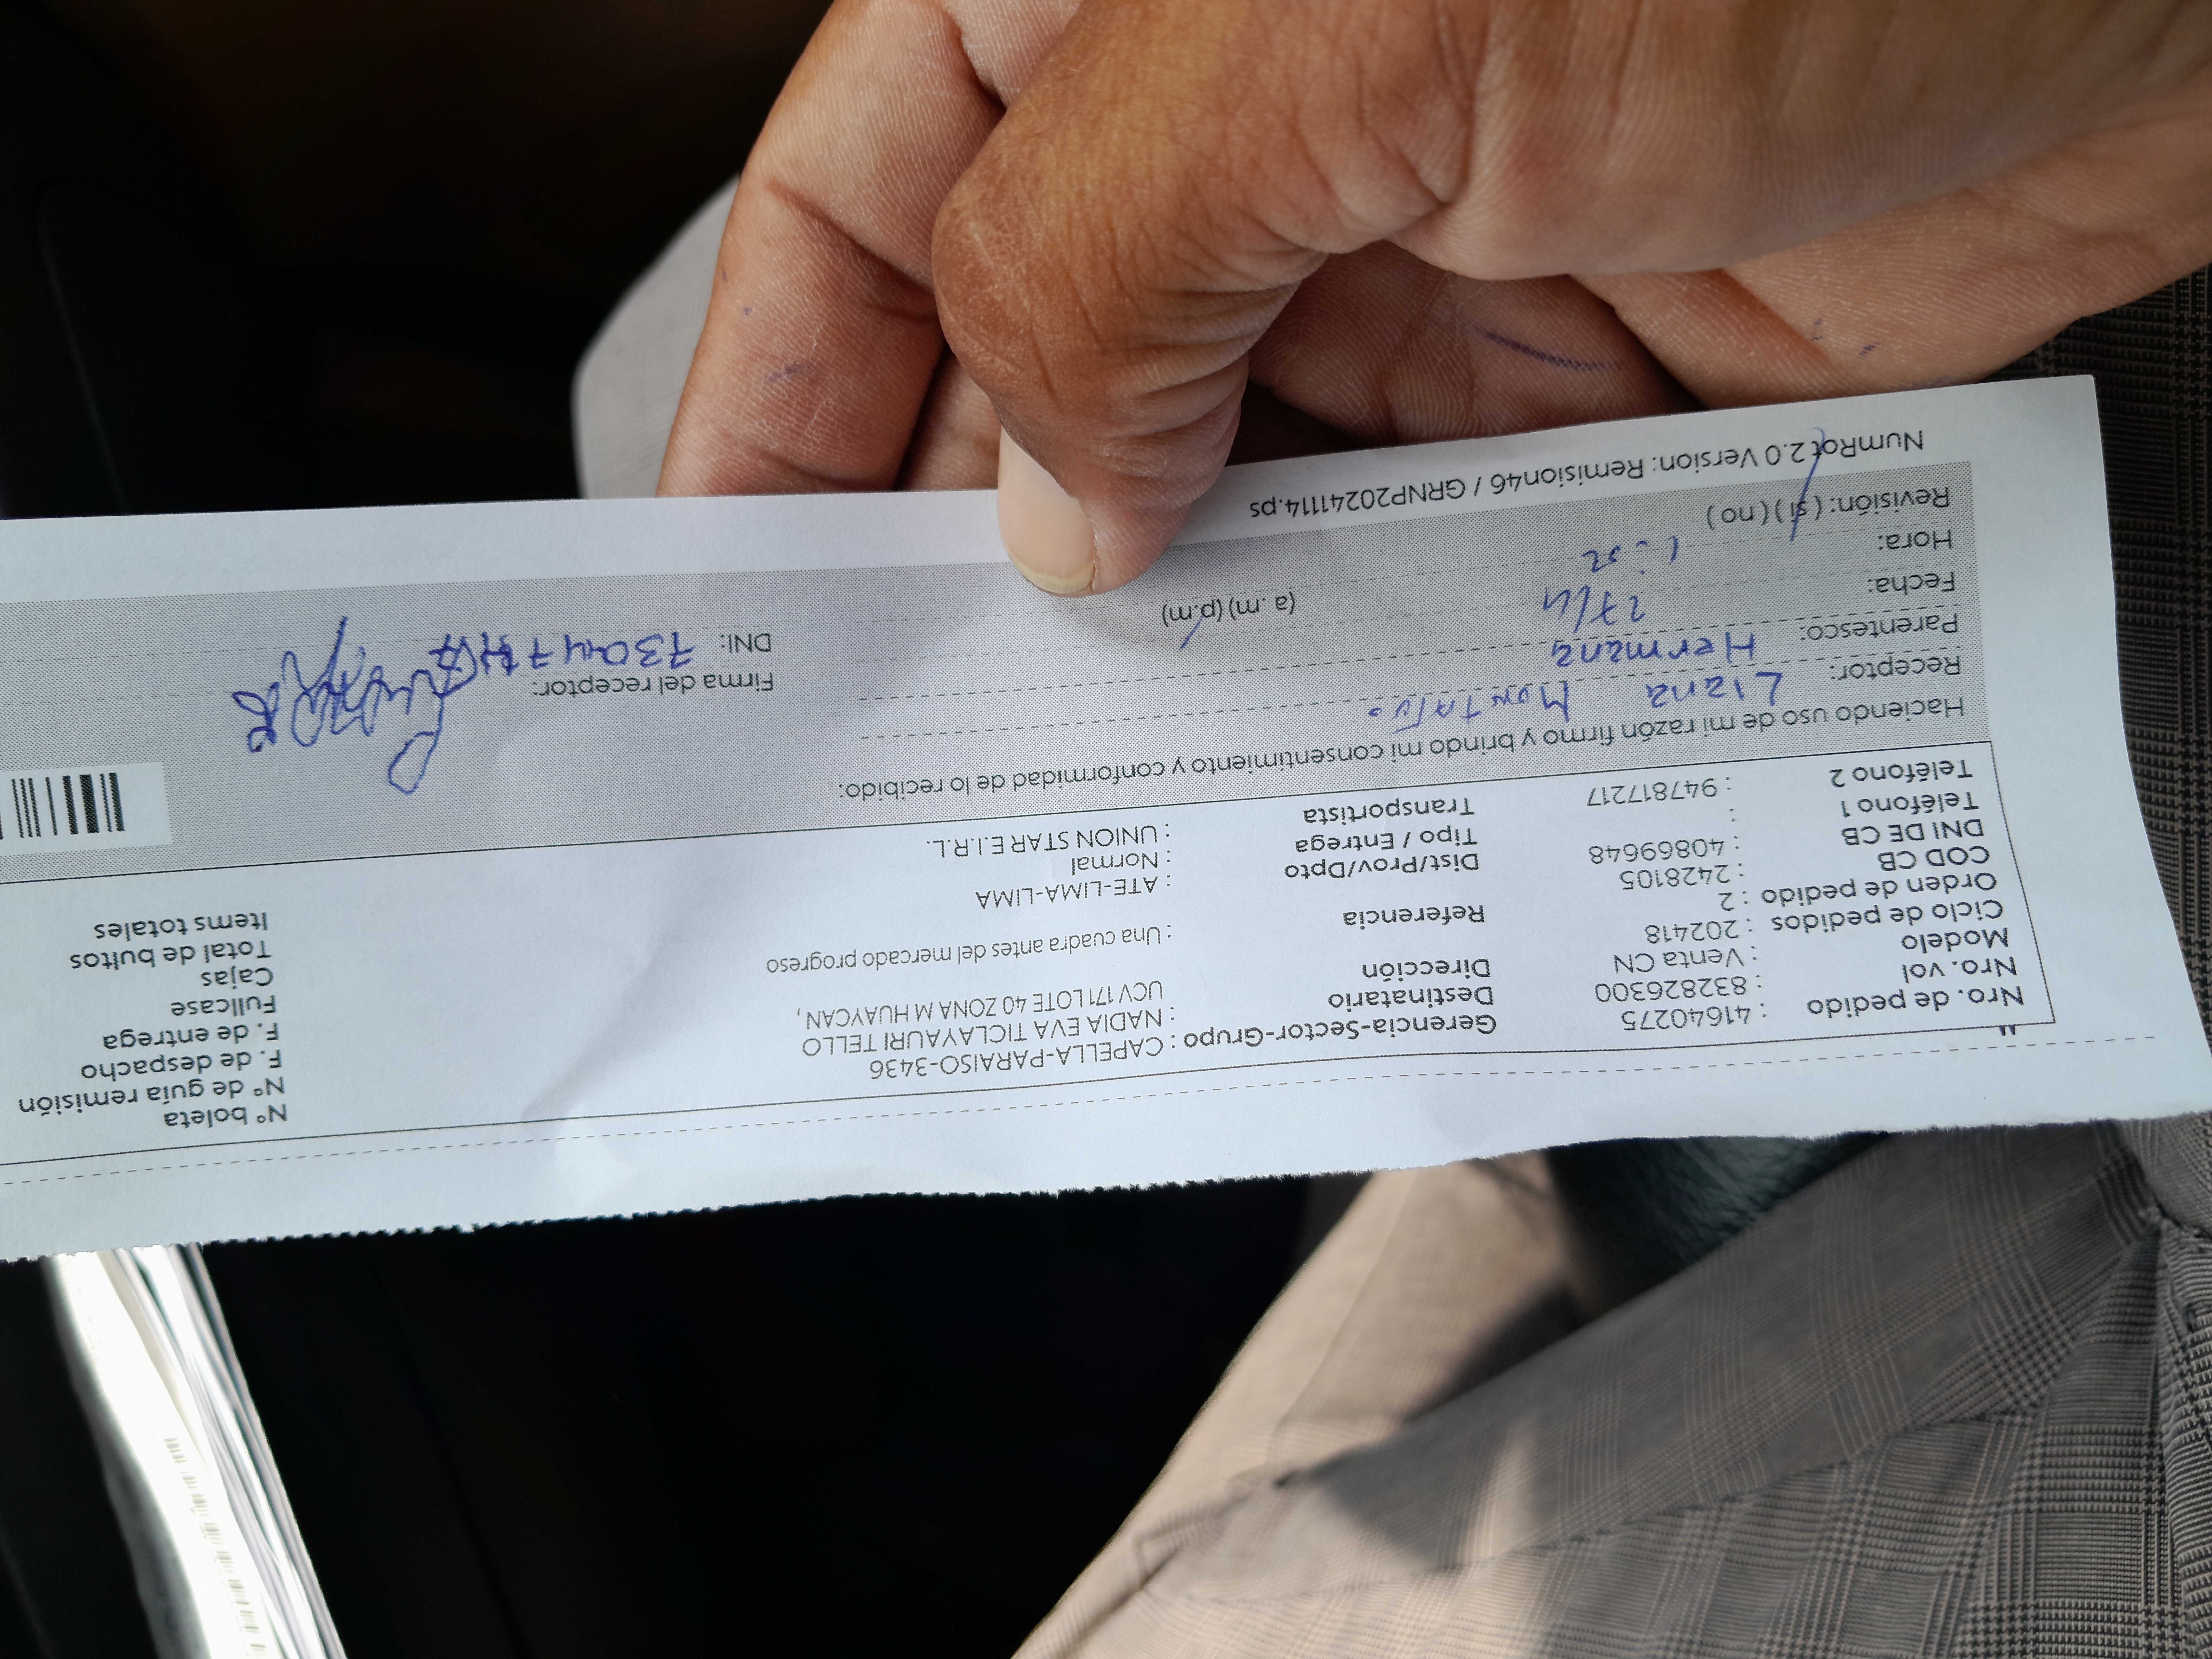 Nro. de pedido : 41640275 Gerencia-Sector-Grupo : CAPELLA-PARAISO-3436 N° boleta
Nro. vol : 832826300 Destinatario : NADIA EVA TICLAYAURI TELLO N° de guía remisión
Modelo : Venta CN Dirección UCV 171 LOTE 40 ZONA M HUAYCAN, F. de despacho
Ciclo de pedidos : 202418 F. de entrega
Orden de pedido : 2 Referencia : Una cuadra antes del mercado progreso Fullcase
COD CB : 2428105 Cajas
DNI DE CB : 40869648 Dist/Prov/Dpto : ATE-LIMA-LIMA Total de bultos
Teléfono 1 : Tipo / Entrega : Normal Items totales
Teléfono 2 : 947817217 Transportista : UNION STAR E.I.R.L.
Haciendo uso de mi razón firmo y brindo mi consentimiento y conformidad de lo recibido:
Receptor: Liana Firma del receptor:
Parentesco: Hermana DNI:
Fecha: 27/11
Hora: (a. m) (p.m)
Revisión: ( si ) ( no )
NumRot 2.0 Version: Remision46 / GRNP20241114.ps